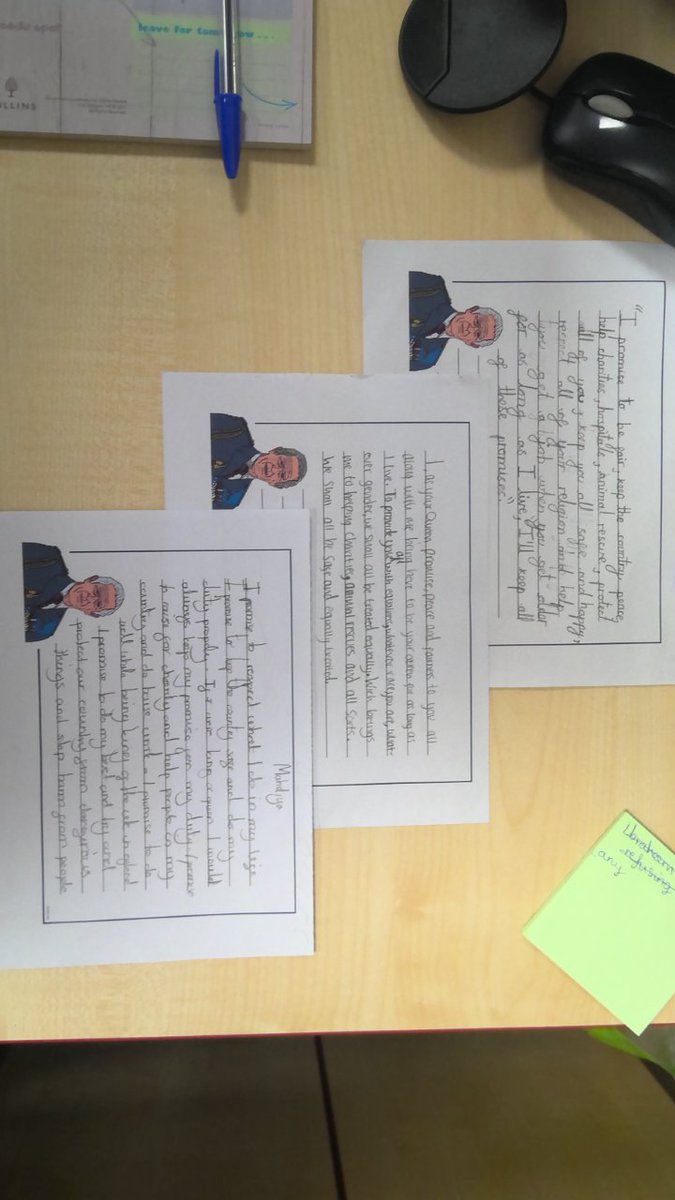 leave for tomorrow...
LLINS
"I promise to be fair, keep the country peace,
help charities, hospitals, animal rescues, protect
all of you, keep you all safe and happy,
respect all of your religion and help
you get a job when you get older
for as long as I live, I'll keep all
of those promises."
I, as your Queen, promise, peace and to you all
along with me being here to be your queen for as long as
I live. To provide you all with equalies, whatever race you are, what-
ever gender, we shall all be treated equally. Wich brings
me to helping charities, animal rescues and all sorts.
We shall all be safe and equally treated.
Mahdiya
I promise to respect what I do in my life
I promise to keep the country safe and do my
duty properly. If I were king or queen I would
always keep my promise for my duty I promise
to raise for charity and help people in my
country and do house work I promise to do
well while being king of the uk england
I promise to do my best and try and
protect our country from dangerous
things and stop harm from people
refusing
any